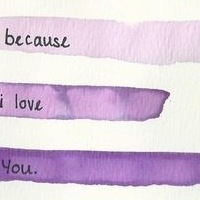 because
i love
You.